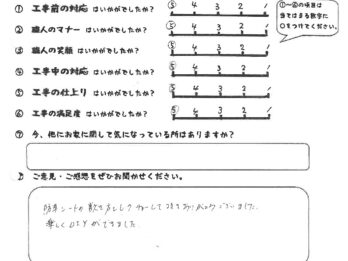 ① 工事前の対応 はいかがでしたか？ ⑤ 4 3 2 1
② 職人のマナー はいかがでしたか？ ⑤ 4 3 2 1
③ 職人の笑顔 はいかがでしたか？ ⑤ 4 3 2 1
④ 工事中の対応 はいかがでしたか？ ⑤ 4 3 2 1
⑤ 工事の仕上り はいかがでしたか？ ⑤ 4 3 2 1
⑥ 工事の満足度 はいかがでしたか？ ⑤ 4 3 2 1
①〜⑥の項目は
当てはまる数字に
○をつけてください。
⑦ 今、他にお家に関して気になっている所はありますか？
ご意見・ご感想をぜひお聞かせください。
防草シートの敷き方 ありがとうございました。
楽しくDIYができました